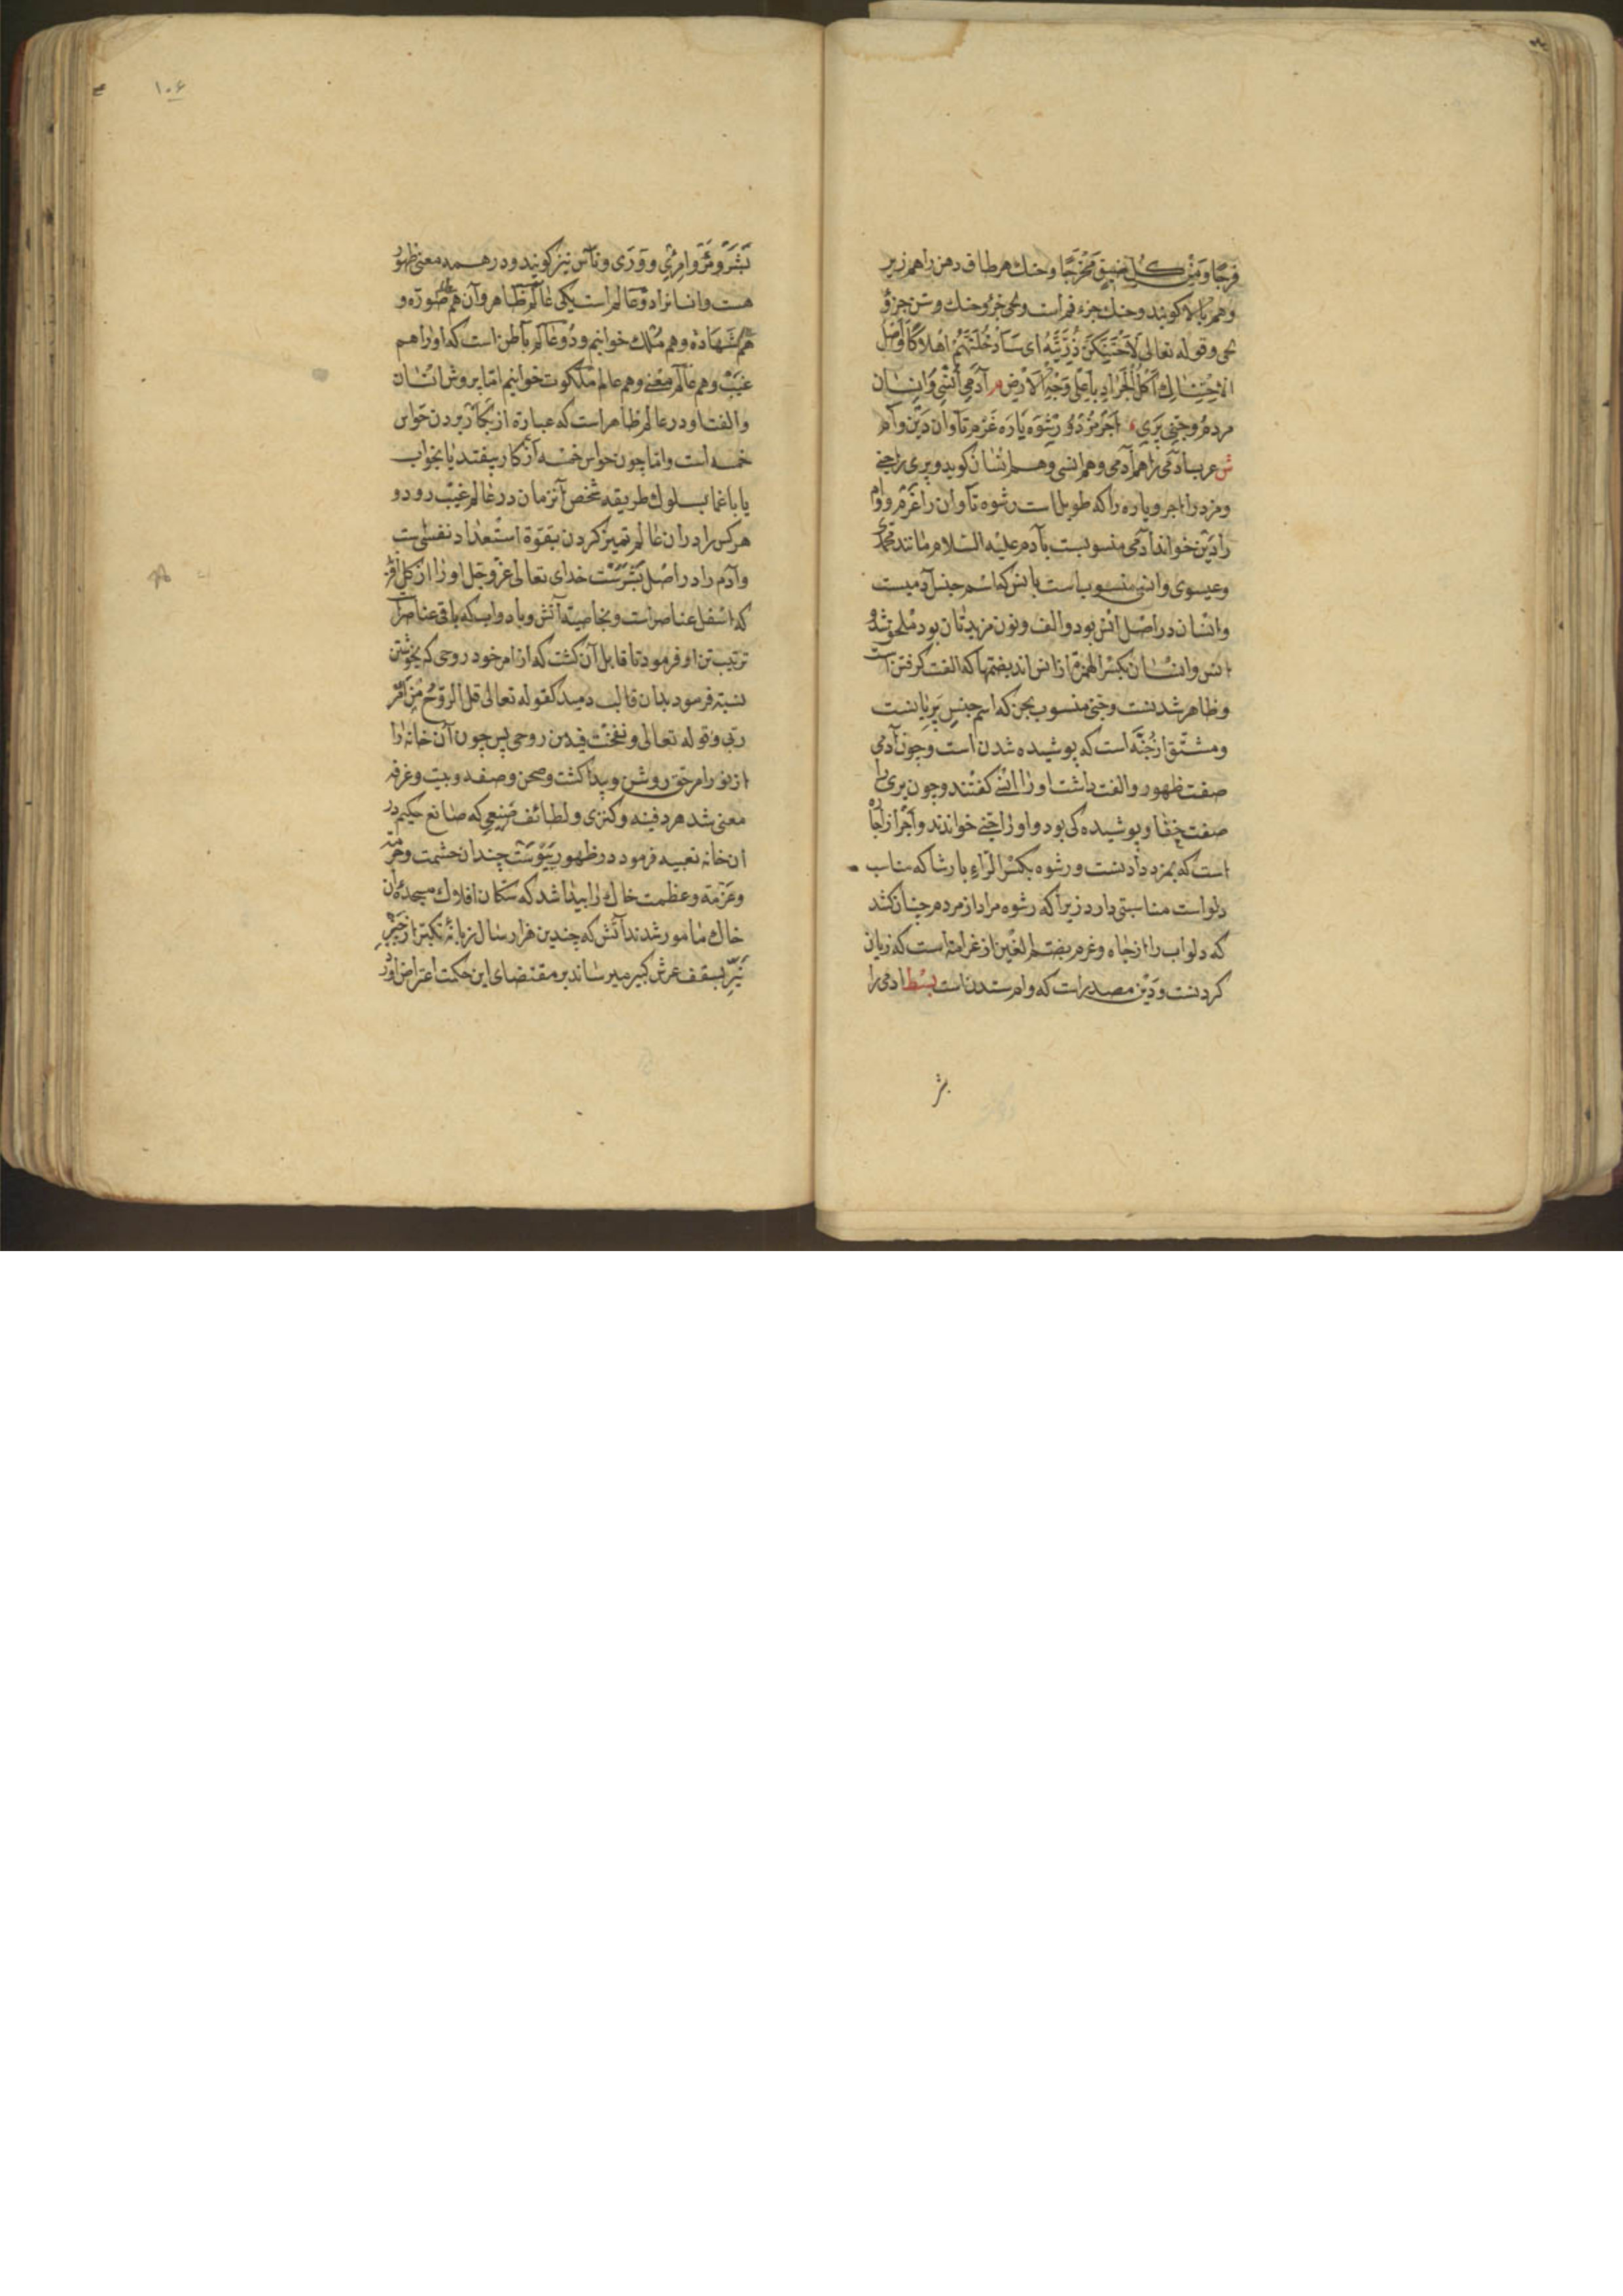 فرجا و من كل ضیق مخرجا و حنك هر طاق دهن را هم زیر
و هم بالا کویند و حنك جزء فم است و لحی جزو حنك و سن جزؤ
لحی و قوله تعالی لاحتنكن ذریته ای سادخلنهم اهلاكا و اصل
الاحتناك اكل الجراد باعلی وجه الارض م آدمی انسی و انسان
مردم و جنی پری اجر مزد و رشوه پاره غرم تاوان دین وام
ش عرب آدمی را هم آدمی و هم انسی و هم انسان کوید و پری را جنی
و مزد را اجر و پاره را که طویل است رشوه تاوان را غرم و وام
را دین خواند آدمی منسوبست بآدم علیه السلام مانند محمدی
و عیسوی و انسی منسوب است بانس که اسم جنس آدمیست
و انسان در اصل انس بود و الف و نون مزیدتان بود ملحق شده
انس و انسان بكسر الهمزة از انس اند بضمها که الفت کرفتن است
و ظاهر شدنست و جنی منسوب بجن که اسم جنس پریانست
و مشتق از جنه است که پوشیده شدن است و چون آدمی
صفت ظهور و الفت داشت او را انسی کفتند و چون پری را
صفت خفا و پوشیده کی بود و او را جنی خواندند و اجر از اجاره
است که بمزد دادنست و رشوه بكسر الراء با رشا که مناسب
دلو است مناسبتی دارد زیرا که رشوه مراد از مردم چنان کشد
که دلو آب را از چاه و غرم بضم الغین از غرامة است که زیان
کردنست و دین مصدر است که وام ستدن است بسط ادمی را
بشر
۱۰۶
بشر و مرؤ و امرئ و وری و ناس نیز کویند و در همه معنی ظهور
هست و انسانرا دو عالم است یکی عالم ظاهر و آن هم عالم صورة و
هم شهادة و هم ملك خوانیم و دو عالم باطن است که او را هم
غیب و هم عالم معنی و هم عالم ملكوت خوانیم اما بروش انسان
و الفت او در عالم ظاهر است که عبارة از بكار بردن حواس
خمسه است و اما چون حواس خمسه از کار بیفتد یا بخواب
یا باغما بسلوك طریقه شخص آنزمان در عالم غیب رود و
هر کس را در ان عالم تمیز کردن بقوة استعداد نفسی است
و آدم را در اصل بشر سرشت خدای تعالی عز و جل او را از کل آفرید
که اسفل عناصر است و بخاصیة آتش و باد و آب که باقی عناصر است
ترتیب تن او فرمود تا قابل آن کشت که از امر خود روحی که بخویشتن
نسبة فرمود بدان قالب دمید کقوله تعالی قل الروح من امر
ربی و قوله تعالی و نفخت فیه من روحی پس چون آن خانه را
از نور امر حق روشن و پیدا کشت و صحن و صفه و بیت و غرفه
معنی شد هر دفینه و کنزی و لطائف صنیعی که صانع حکیم در
ان خانه تعبیه فرمود در ظهور پیوست چندان حشمت و حرمة
و عزمة و عظمت خاك را پیدا شد که سكان افلاك بسجدهٔ ان
خاك مامور شدند آتش که چندین هزار سال زبانهٔ تكبر از حیز
نیر بسقف عرش كبیر میرساند بر مقتضای این حكمت اعتراض آورد